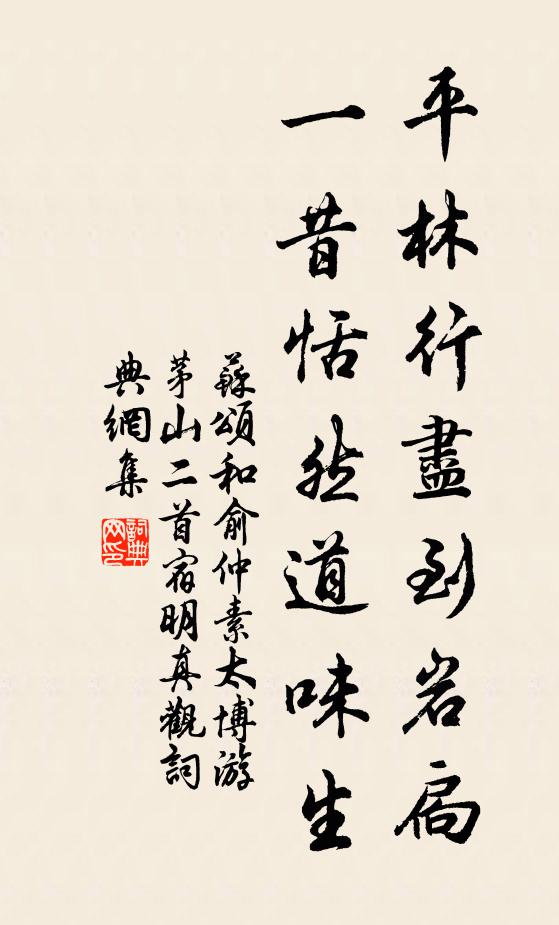 平林行盡到岩扃
一昔恬然道味生
蘇頌和俞仲素太博游
茅山二首宿明真觀詞
典網集
詞典網印